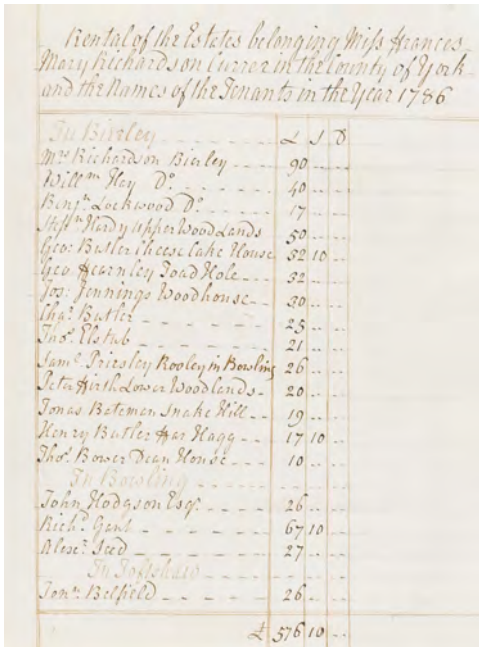 Rental of the Estates belonging Miss Frances
Mary Richardson Currer in the County of York
and the Names of the Tenants in the Year 1786
In Bierley - - - - - - £ S D
Mrs Richardson Bierley - - - 90 .. ..
Willm Hey Do. - - - - 40 .. ..
Benjn Lockwood Do - - - 17 .. ..
Stepn Hardy upper Wood Lands 50 .. ..
Geo: Butler Cheese Cake House 32 10 ..
Geo Fearnley Toad Hole - - 32 .. ..
Jos: Jennings Woodhouse - - 30 .. ..
Chas Butler - - - - 25 .. ..
Thos. Elstub - - - - 21 .. ..
Jams. Priesley Rooley in Bowling 26 .. ..
Peter Hirst Lower Woodlands - 20 .. ..
Jonas Bateman Snake Hill - - 19 .. ..
Henry Butler Har Hagg - - 17 10 ..
Thos. Bower Dean House - - - 10 .. ..
In Bowling - - - - - -
John Hodgson Esqr. - - - - 26 .. ..
Richd Gant - - - - 67 10 ..
Alexr: Seed - - - - 27 .. ..
In Toftshaw - - - - -
Jonn: Belfield - - - - 26 .. ..
£ 576 10 ..